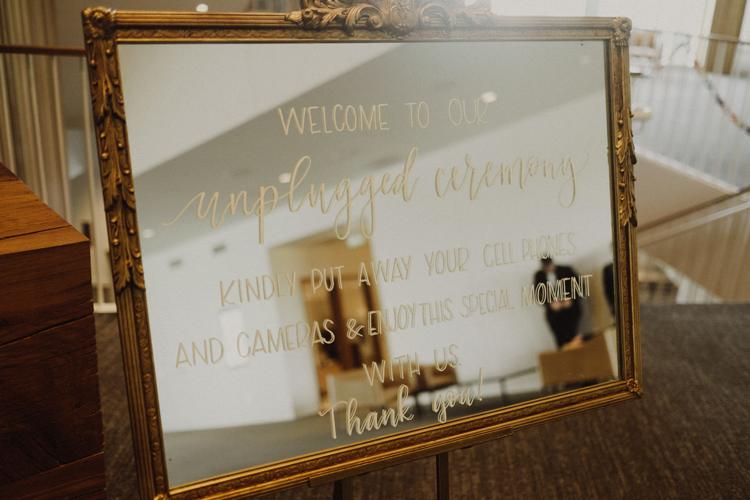 WELCOME TO OUR
unplugged ceremony
KINDLY PUT AWAY YOUR CELL PHONES
AND CAMERAS & ENJOY THIS SPECIAL MOMENT
WITH US.
Thank you!